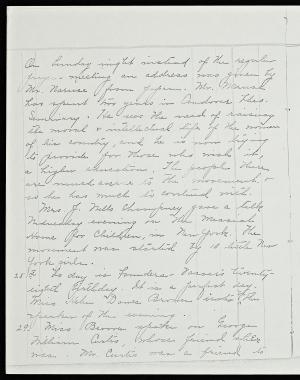 On Sunday night instead of the regular
prayer-meeting an address was given by
Mr. Naruse from Japan. Mr. Naruse
has spent two years in Andover Theo.
Seminary. He sees the need of raising
the moral & intellectual life of the women
of his country, and he is now trying
to provide for those who wish it,
a higher education. The people there
are much averse to the movement, &
so he has much to contend with.
Mrs. J. Wells Champney gave a talk
Wednesday evening on the Messiah
Home for Children, in New York. The
movement was started by 10 little New
York girls.
28 F. To day is Founders - Vassar's twenty-
eighth birthday. It is a perfect day.
Miss Helen Dawes Brown is the
speaker of the evening.
29. Miss Brown spoke on George
William Curtis, whose friend she
was. Mr. Curtis was a friend to